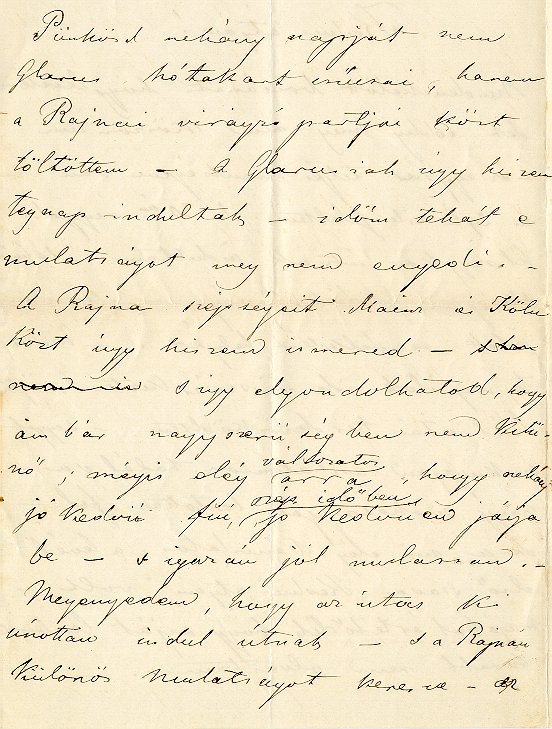 Pünkösd nehány napját nem
Glarus hótakart csúcsai, hanem
a Rajnai virányos partjai közt
töltöttem – A Glarusiak úgy hiszem
tegnap indultak – időm tehát e
mulatságot meg nem engedi. –
A Rajna szépségeit Mainz és Köln
közt úgy hiszem ismered –
s így elgondolhatod, hogy
ámbár nagyszerűségben nem kitü-
nő, mégis elég változatos arra, hogy nehány
jó kedvü fiú, szép időben jó kedvüen járja
be – s igazán jól mulasson. –
Megengedem, hogy az útas ki
únottan indul útnak – s a Rajnán
különös mulatságot keresve – az